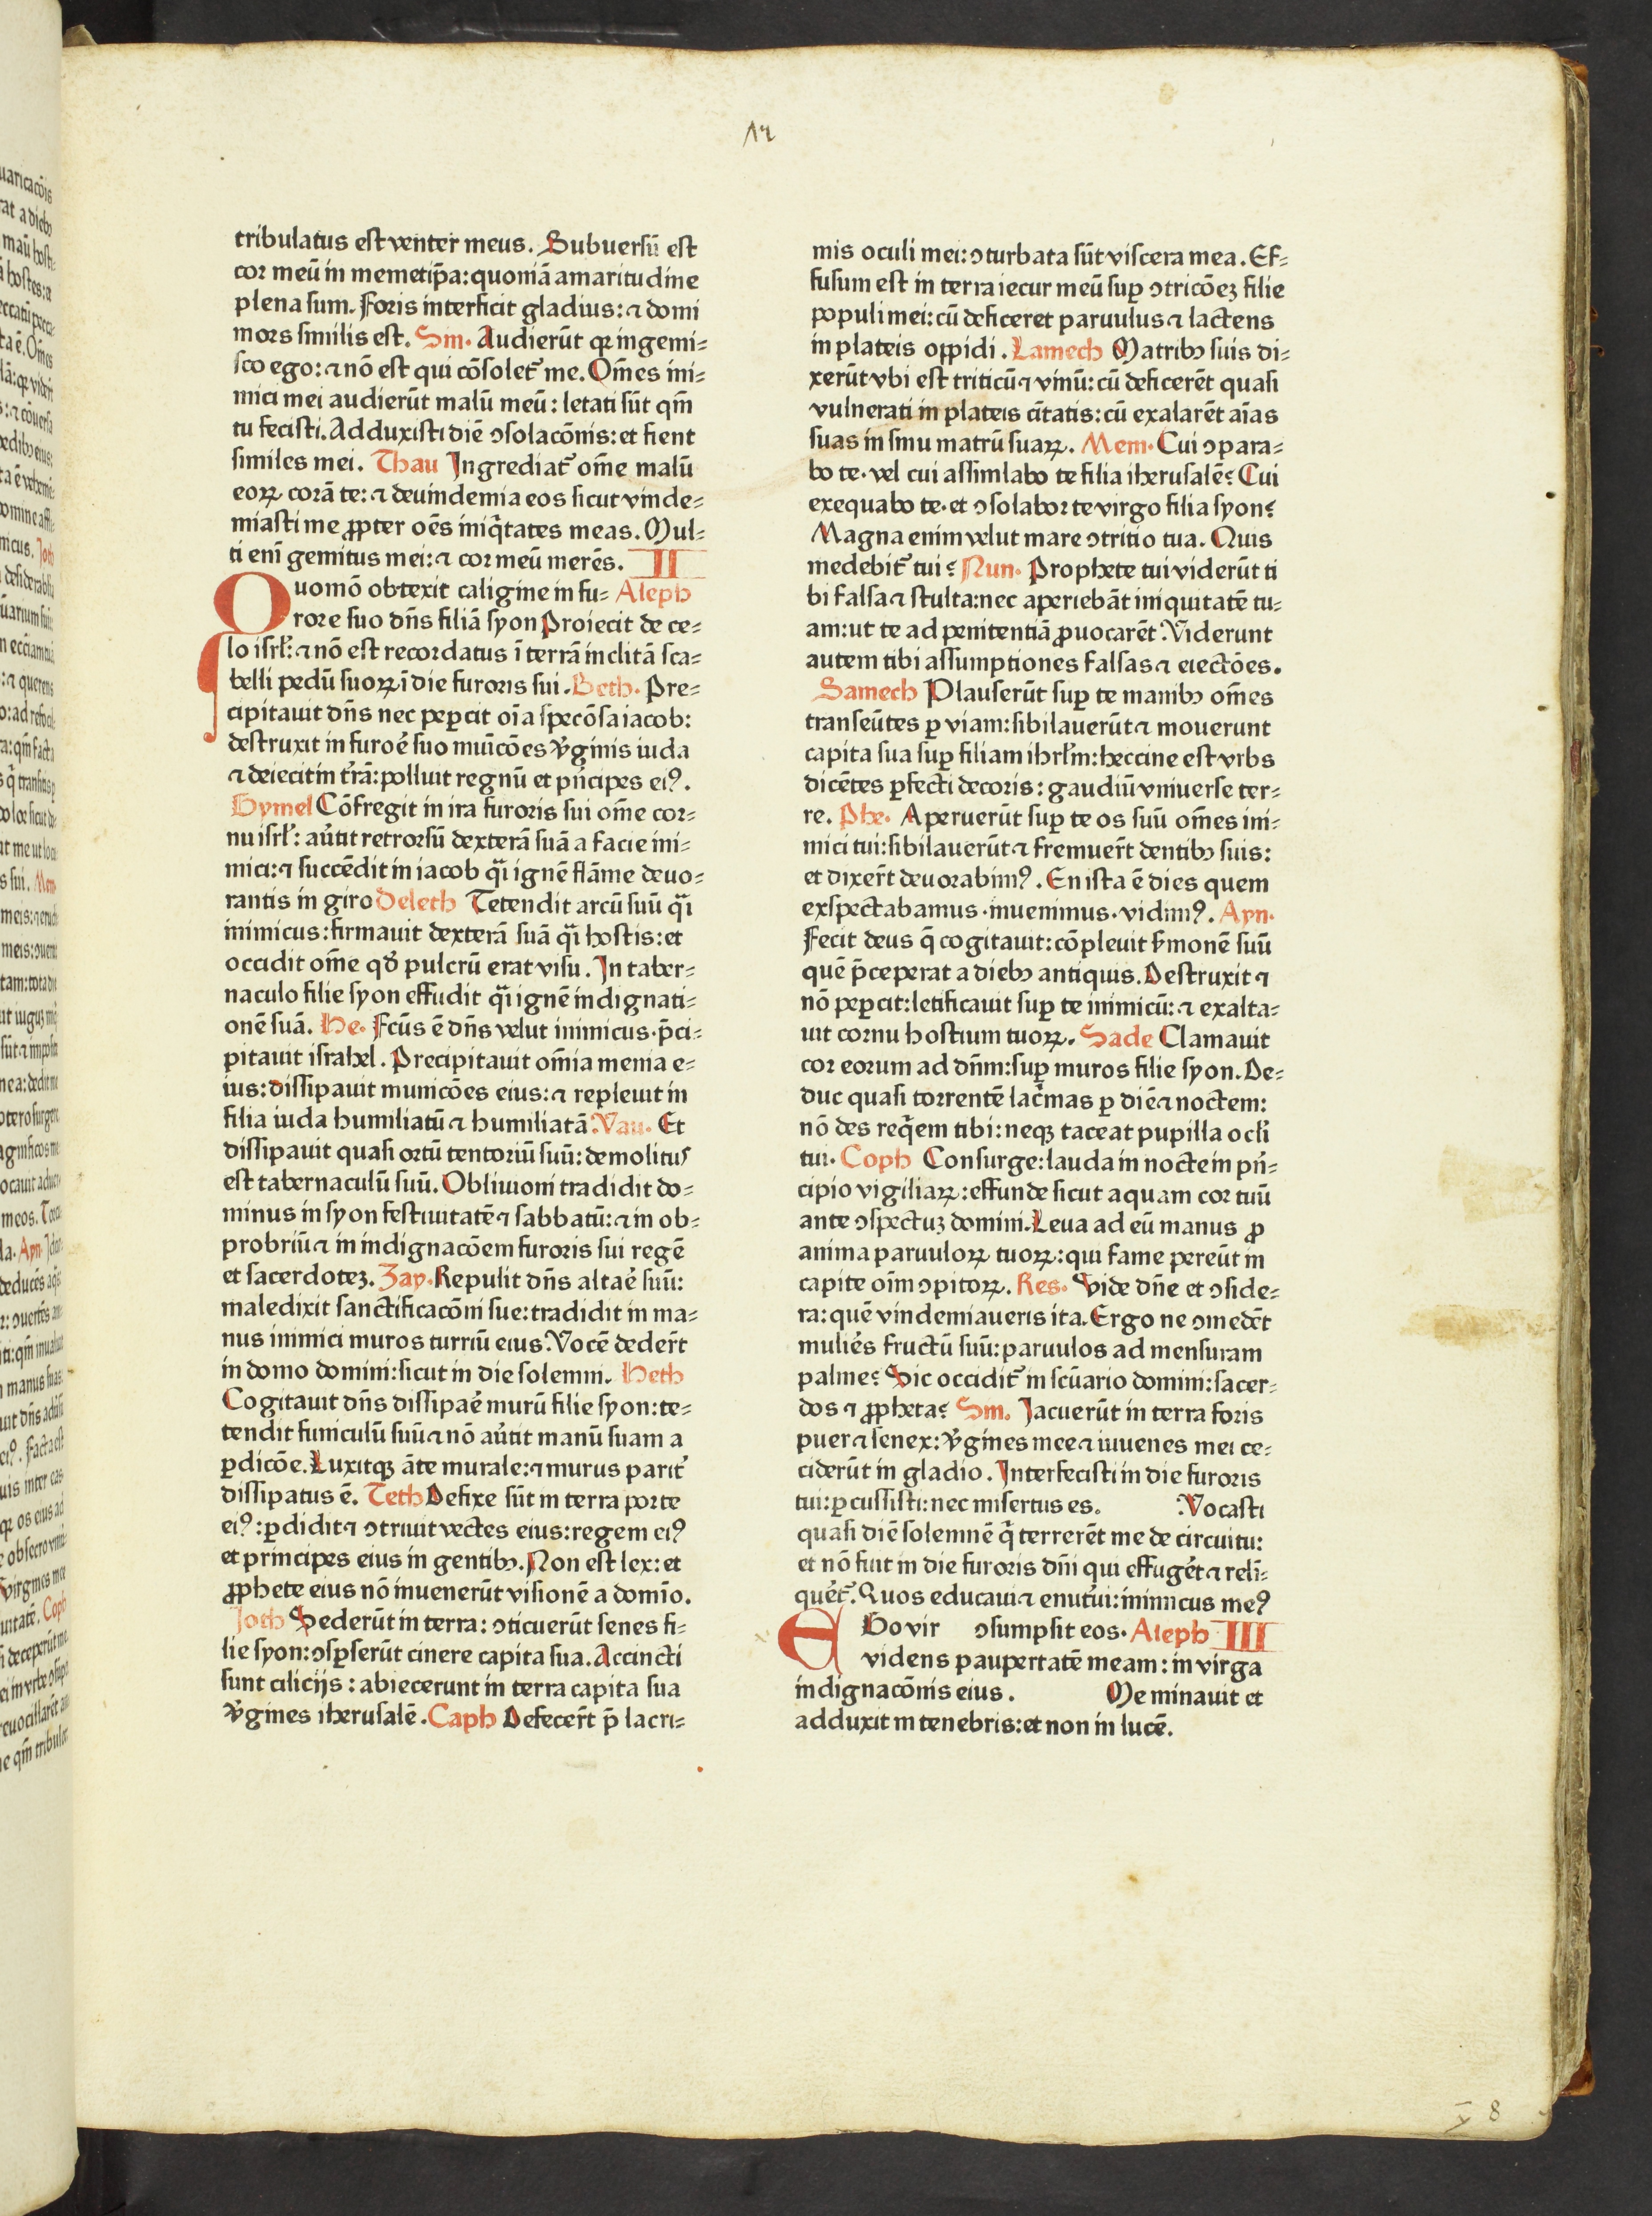 17
tribulatus est venter meus. Subuersū est
cor meū in memetip̄a: quoniā amaritudine
plena sum. Foris interficit gladius: ⁊ domi
mors similis est. Sin. Audierūt qꝛ ingemi⸗
sco ego: ⁊ nō est qui cōsolet᷑ me. Om̄es ini⸗
mici mei audierūt malū meū: letati sūt qm̄
tu fecisti. Adduxisti diē ↄsolacōnis: et fient
similes mei. Thau Ingrediat᷑ om̄e malū
eoꝝ corā te: ⁊ deuindemia eos sicut vinde⸗
miasti me ꝓpter oēs iniq̄tates meas. Mul⸗
ti enī gemitus mei: ⁊ cor meū merēs. II
Quomō obtexit caligine in fu⸗ Aleph
rore suo dn̄s filiā syon Proiecit de ce⸗
lo isrl̄: ⁊ nō est recordatus ī terrā inclitā sca⸗
belli pedū suoꝝ ī die furoris sui. Beth. Pre⸗
cipitauit dn̄s nec peꝑcit oīa specōsa iacob:
destruxit in furoꝛe suo muīcōes v̓ginis iuda
⁊ deiecit in t̓rā: polluit regnū et pn̓cipes eiꝰ.
Gymel Cōfregit in ira furoris sui om̄e cor⸗
nu isrl̄: au̓tit retrorsū dexterā suā a facie ini⸗
mici: ⁊ succēdit in iacob qͣi ignē flāme deuo⸗
rantis in giro Deleth Tetendit arcū suū qͣi
inimicus: firmauit dexterā suā qͣi hostis: et
occidit om̄e qđ pulcrū erat visu. In taber⸗
naculo filie syon effudit qͣi ignē indignati⸗
onē suā. He. Fcūs ē dn̄s velut inimicus. p̄ci⸗
pitauit israhel. Precipitauit om̄ia menia e⸗
ius: dissipauit municōes eius: ⁊ repleuit in
filia iuda humiliatū ⁊ humiliatā. Vau. Et
dissipauit quasi ortū tentoriū suū: demolitus
est tabernaculū suū. Obliuioni tradidit do⸗
minus in syon festiuitatē ⁊ sabbatū: ⁊ in ob⸗
probriū ⁊ in indignacōem furoris sui regē
et sacerdoteʒ. Zay. Repulit dn̄s altaꝛe suū:
maledixit sanctificacōni sue: tradidit in ma⸗
nus inimici muros turriū eius. Vocē dedert̄
in domo domini: sicut in die solemni. Heth
Cogitauit dn̄s dissipaꝛe murū filie syon: te⸗
tendit funiculū suū ⁊ nō au̓tit manū suam a
ꝑdicōe. Luxitqꝫ āte murale: ⁊ murus parit̓
dissipatus ē. Teth Defixe sūt in terra porte
eiꝰ: ꝑdidit ⁊ ↄtriuit vectes eius: regem eiꝰ
et principes eius in gentibꝫ. Non est lex: et
ꝓphete eius nō inuenerūt visionē a domīo.
Joth Sederūt in terra: ↄticuerūt senes fi⸗
lie syon: ↄsꝑserūt cinere capita sua. Accincti
sunt cilicijs: abiecerunt in terra capita sua
v̓gines iherusalē. Caph Defecert̄ p̄ lacri⸗
mis oculi mei: ↄturbata sūt viscera mea. Ef⸗
fusum est in terra iecur meū suꝑ ↄtricōeʒ filie
populi mei: cū deficeret paruulus ⁊ lactens
in plateis oppidi. Lamech Matribꝫ suis di⸗
xerūt vbi est triticū ⁊ vinū: cū deficerēt quasi
vulnerati in plateis ciītatis: cū exalarēt aīas
suas in sinu matrū suaꝝ. Mem. Cui ↄpara⸗
bo te. vel cui assimlabo te filia iherusalē? Cui
exequabo te. et ↄsolabor te virgo filia syon?
Magna enim velut mare ↄtritio tua. Quis
medebit᷑ tui? Nun. Prophete tui viderūt ti
bi falsa ⁊ stulta: nec aperiebāt iniquitatē tu⸗
am: ut te ad penitentiā ꝓuocarēt. Viderunt
autem tibi assumptiones falsas ⁊ eiectōes.
Samech Plauserūt suꝑ te manibꝫ om̄es
transeūtes ꝑ viam: sibilauerūt ⁊ mouerunt
capita sua suꝑ filiam ihrl̄m: heccine est vrbs
dicētes ꝑfecti decoris: gaudiū vniuerse ter⸗
re. Phe. Aperuerūt suꝑ te os suū om̄es ini⸗
mici tui: sibilauerūt ⁊ fremuert̄ dentibꝫ suis:
et dixert̄ deuorabimꝰ. En ista ē dies quem
exspectabamus. inuenimus. vidimꝰ. Ayn.
Fecit deus q̄ cogitauit: cōpleuit s̓monē suū
quē p̄ceperat a diebꝫ antiquis. Destruxit ⁊
nō peꝑcit: letificauit suꝑ te inimicū: ⁊ exalta⸗
uit cornu hostium tuoꝝ. Sade Clamauit
cor eorum ad dn̄m: suꝑ muros filie syon. De⸗
duc quasi torrentē lac̓mas ꝑ diē ⁊ noctem:
nō des req̄em tibi: neqꝫ taceat pupilla ocl̓i
tui. Coph Consurge: lauda in nocte in pn̓⸗
cipio vigiliaꝝ: effunde sicut aquam cor tuū
ante ↄspectuʒ domini. Leua ad eū manus ꝓ
anima paruuloꝝ tuoꝝ: qui fame pereūt in
capite oīm ↄpitoꝝ. Res. Vide dn̄e et ↄside⸗
ra: quē vindemiaueris ita. Ergo ne ↄmedēt
mulieꝛes fructū suū: paruulos ad mensuram
palme? Sic occidit᷑ in scūario domini: sacer⸗
dos ⁊ ꝓpheta? Sin. Jacuerūt in terra foris
puer ⁊ senex: v̓gines mee ⁊ iuuenes mei ce⸗
ciderūt in gladio. Interfecisti in die furoris
tui: ꝑcussisti: nec misertus es. Vocasti
quasi diē solemnē q̄ terrerēt me de circuitu:
et nō fuit in die furoris dn̄i qui effuge̓t ⁊ reli̓⸗
que̓t᷑. Quos educaui ⁊ enut̓ui: inimicus meꝰ
Ego vir ↄsumpsit eos. Aleph III
videns paupertatē meam: in virga
indignacōnis eius. Me minauit et
adduxit in tenebris: et non in lucē.
8